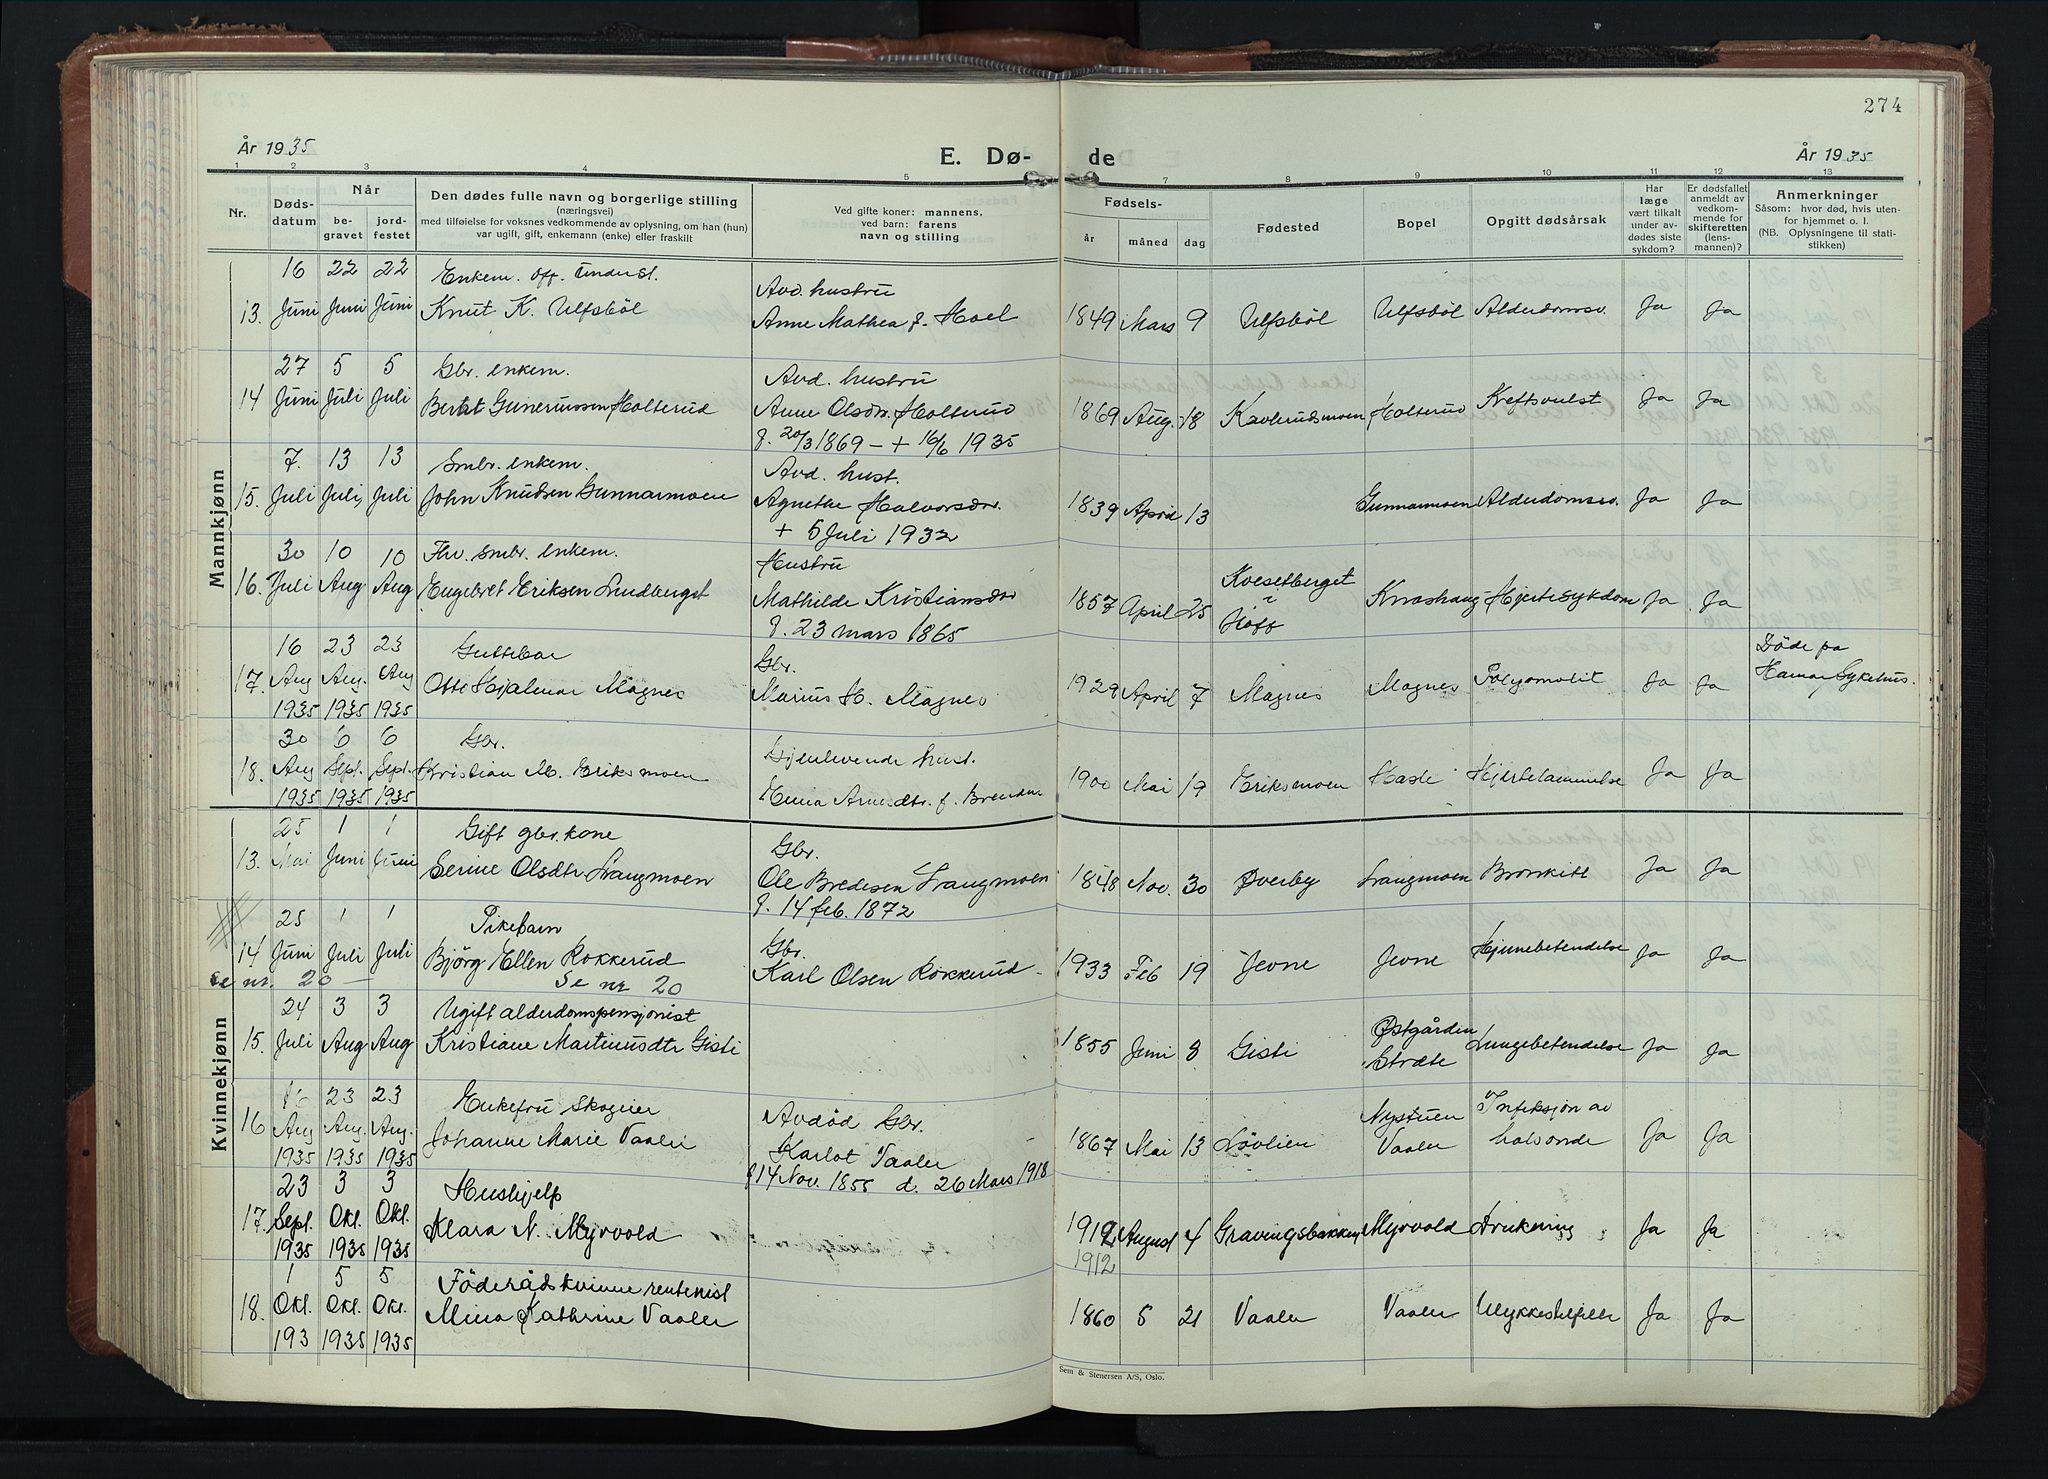 274
År 1935
E. Dø-
de
År 1935
1 2 3 4 5 7 8 9 10 11 12 13
Nr.
Dødsdatum
Når
begravet
jordfestet
Den dødes fulle navn og borgerlige stilling
(næringsvei)
med tilføielse for voksnes vedkommende av oplysning, om han (hun)
var ugift, gift, enkemann (enke) eller fraskilt
Ved gifte koner: mannens,
ved barn: farens
navn og stilling
Fødsels-
år måned dag
Fødested
Bopel
Opgitt dødsårsak
Har
læge
vært tilkalt
under av-
dødes siste
sykdom?
Er dødsfallet
anmeldt av
vedkom-
mende for
skifteretten
(lens-
mannen)?
Anmerkninger
Såsom: hvor død, hvis uten-
for hjemmet o. l.
(NB. Oplysningene til stati-
stikken)
Mannkjønn
16 22 22 Enkem. off. underst. Avd. hustru
13. Juni Juni Juni Knut K. Ulfsböl Anne Mathea f. Hoel 1849 Mars 9 Ulfsböl Ulfsböl Alderdomsv. Ja Ja
27 5 5 Gbr. enkem. Avd. hustru
14 Juni Juli Juli Bernt Gunerussen Holterud Anne Olsdr. Holterud 1869 Aug. 18 Kavlerudsmoen Holterud Kreftsvulst Ja Ja
f. 20/3 1869 - + 16/6 1935
7. 13 13 Smbr. enkem. Avd. hust.
15. Juli Juli Juli John Knudsen Gunnarmoen Agnethe Halvorsdr. 1839 April 13 Gunnarmoen Alderdomssv. Ja Ja
+ 5 Juli 1932
30 10 10 Fhv. smbr. enkem. Hustru
16. Juli Aug Aug Engebret Eriksen Lundberget Mathilde Kristiansdr 1857 April 25 Kvesetberget i Hoff Knashaug Hjertesykdom Ja Ja
f. 23 mars 1865
16 23 23 Guttebar Gbr. Döde pa
17. Aug Aug. Aug Otto Hjalmar Magnes Marius H. Magnes 1929 April 7 Magnes Magnes Polyomolit Ja Ja Hamar Sykehus.
1935 1935 1935
30 6 6 Gbr. Gjenlevende hust.
18. Aug Sept. Sept. Kristian M. Eriksmoen Emma Arnesdtr. f. Brenden 1900 Mai 19 Eriksmoen Hasle Hjertelammelse Ja Ja
1935 1935 1935
Kvinnekjønn
25 1 1 Gift gbr. kone Gbr.
13. Mai Juni Juni Serine Olsdtr Langmoen Ole Bredesen Langmoen 1848 Nov. 30 Överby Langmoen Bronkitt Ja Ja
f. 14 feb. 1872
25 1 1 Pikebarn Gbr.
14 Juni Juli Juli Björg Ellen Rokkerud Karl Olsen Rokkerud 1933 Feb 19 Jevne Jevne Hjernebetendelse Ja Ja
se nr. 20 — Se nr 20
24 3 3 Ugift alderdomspensjonist
15. Juli Aug Aug Kristiane Martinusdtr Gisti 1855 Juni 8 Gisti Østgården Stræte Lungebetendelse Ja Ja
16 23 23 Enkefru Skogeier Avdød Gbr.
16 Aug Aug. Aug. Johanne Marie Vaaler Karlot Vaaler 1867 Mai 13 Lövlien Nystuen Vaaler Infeksjon av halsonde Ja Ja
1935 1935 1935 f 14 Nov. 1855 d. 26 Mars 1918
23 3 3 Hushjelp
17. Sept. Okt. Okt. Klara N. Myrvold 1912 August 4 Gravingsbakken Myrvold Drukning Ja Ja
1935 1935 1935 1912
1 5 5 Föderådskvinne rentenist
18. Okt. Okt. Okt. Mina Kathrine Vaaler 1860 5 21 Vaaler Vaaler Ulykkestilfelle Ja Ja
193 1935 1935
Sem & Stenersen A/S, Oslo.